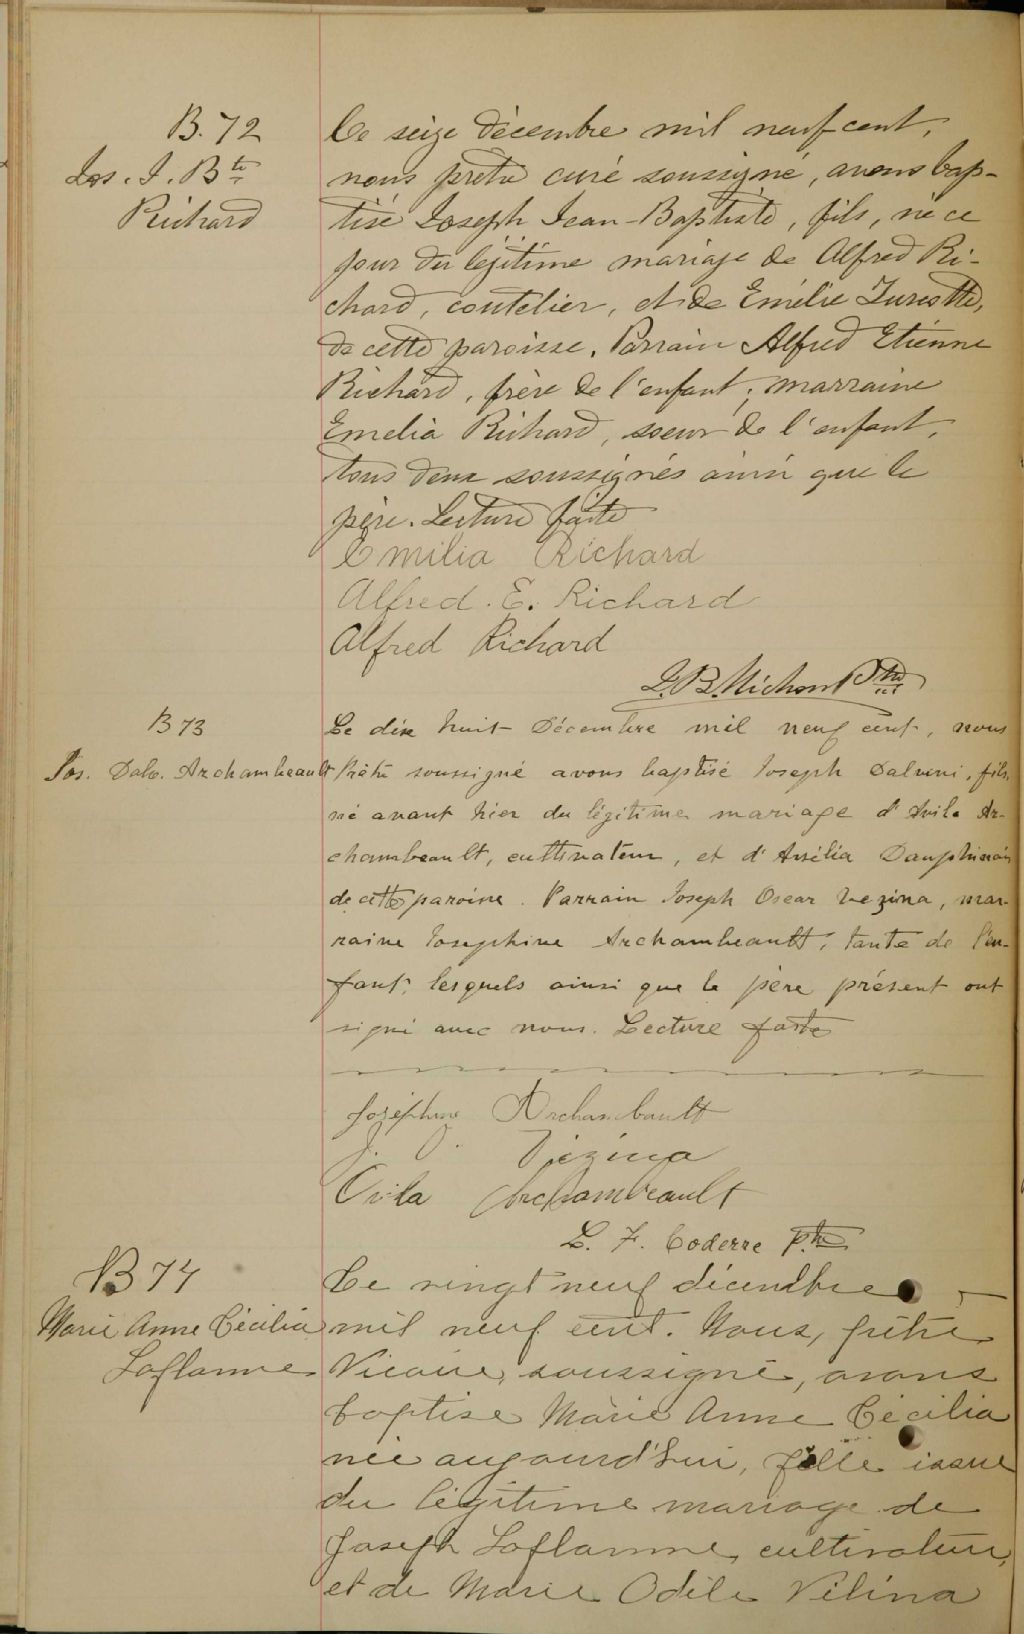 B. 72
Jos. J. Bte
Richard
Ce seize décembre mil neuf cent,
nous prêtre curé soussigné, avons bap-
tisé Joseph Jean-Baptiste, fils, né ce
jour du légitime mariage de Alfred Ri-
chard, coutelier, et de Emélie Turcotte,
de cette paroisse. Parrain Alfred Etienne
Richard, frère de l'enfant; marraine
Emelia Richard, soeur de l'enfant,
tous deux soussignés ainsi que le
père. Lecture faite
Emilia Richard
Alfred. E. Richard
Alfred Richard
J. B. Michon Ptre
B 73
Jos. Dalv. Archambeault
Le dix huit Décembre mil neuf cent, nous
Prêtre soussigné avons baptisé Joseph Dalvini, fils,
né avant hier du légitime mariage d'Avila Ar-
chambeault, cultivateur, et d'Amélia Dauphinais
de cette paroisse. Parrain Joseph Oscar Vezina, mar-
raine Josephine Archambeault, tante de l'en-
fant, lesquels ainsi que le père présent ont
signé avec nous. Lecture faite
Joséphine Archambault
J. O. Vézina
Avila Archambeault
L. F. Coderre Ptre
B 74
Marie Anne Cécilia
Laflamme
Le vingt neuf décembre
mil neuf cent. Nous, prêtre
Vicaire, soussigné, avons
baptisé Marie Anne Cécilia
née aujourd'hui, fille issue
du légitime mariage de
Joseph Laflamme, cultivateur,
et de Marie Odile Vélina